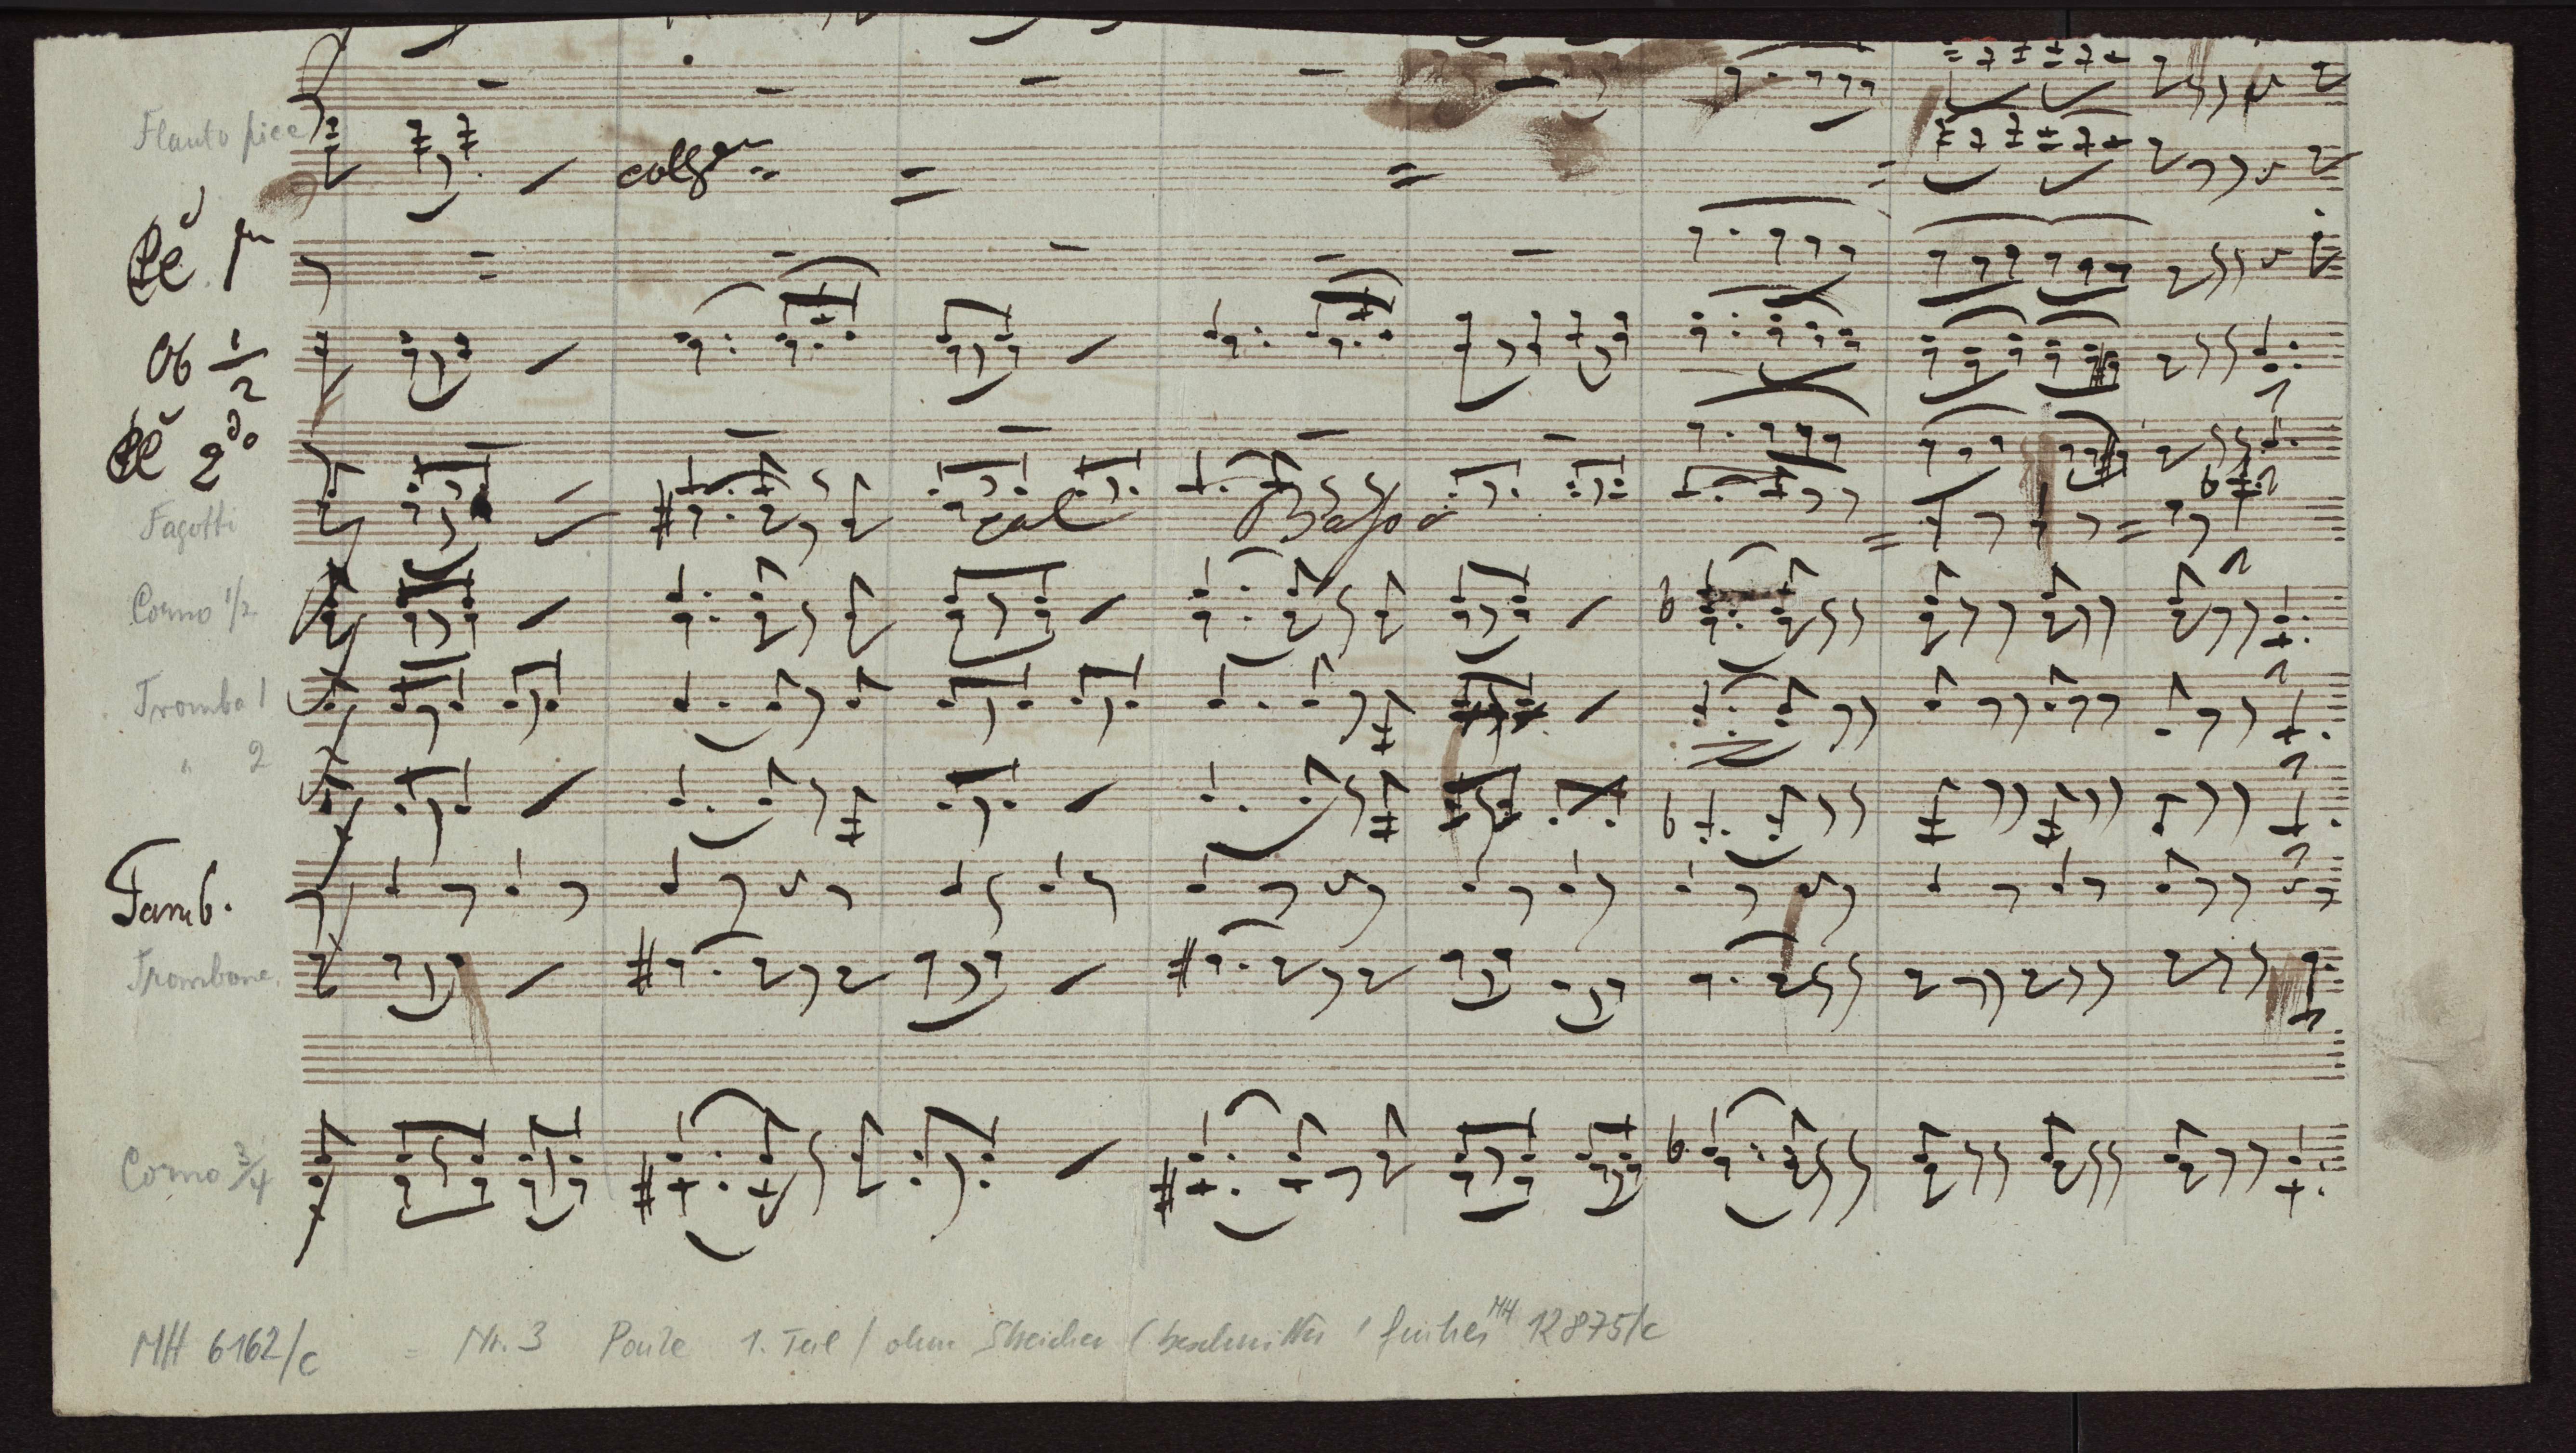 Flauto picc
col 8
Cl 1mo
Ob 1/2
Cl 2do
Fagotti
col Basso
Corno 1/2
Tromba 1
" 2
Tamb.
Trombone.
Corno 3/4
MH 6162/c = Nr. 3 1. Teil / ohne Streicher (beschnitten / früher MH 12875/c